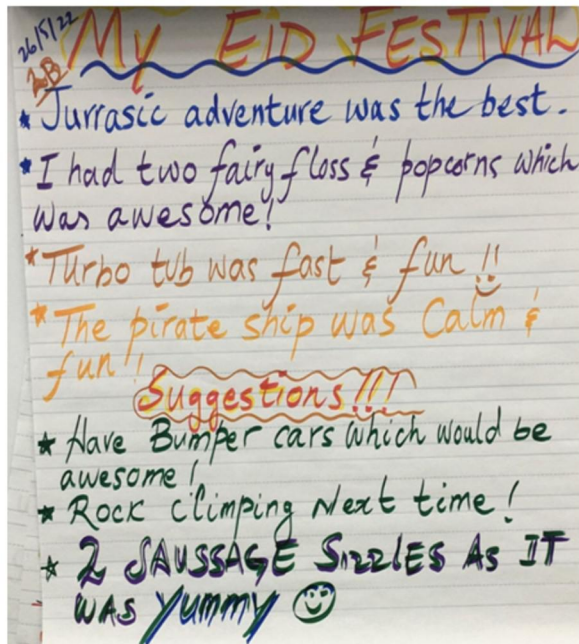 26/5/22
2B
My EiD FESTIVAL
* Jurrasic adventure was the best.
* I had two fairy floss & popcorns which
was awesome!
* Turbo tub was fast & fun!!
* The pirate ship was Calm &
fun!!
Suggestions!!!
* Have Bumper cars which would be
awesome!
* Rock climping Next time!
* 2 SAUSSAGE SizzlES AS IT
WAS Yummy